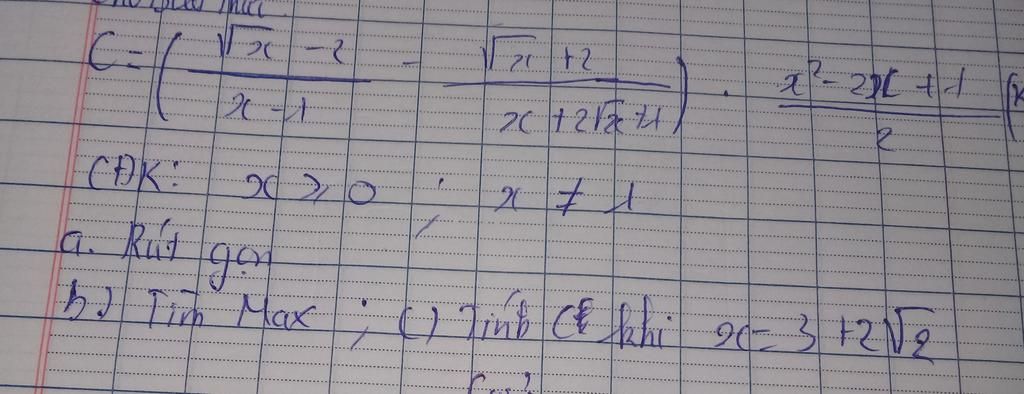 C = ( (√x - 2)/(x - 1) - (√x + 2)/(x + 2√x + 1) ) . (x² - 2x + 1)/2
(ĐK: x ≥ 0 ; x ≠ 1
a. Rút gọn
b.) Tìm Max ; c) Tính C khi x = 3 + 2√2